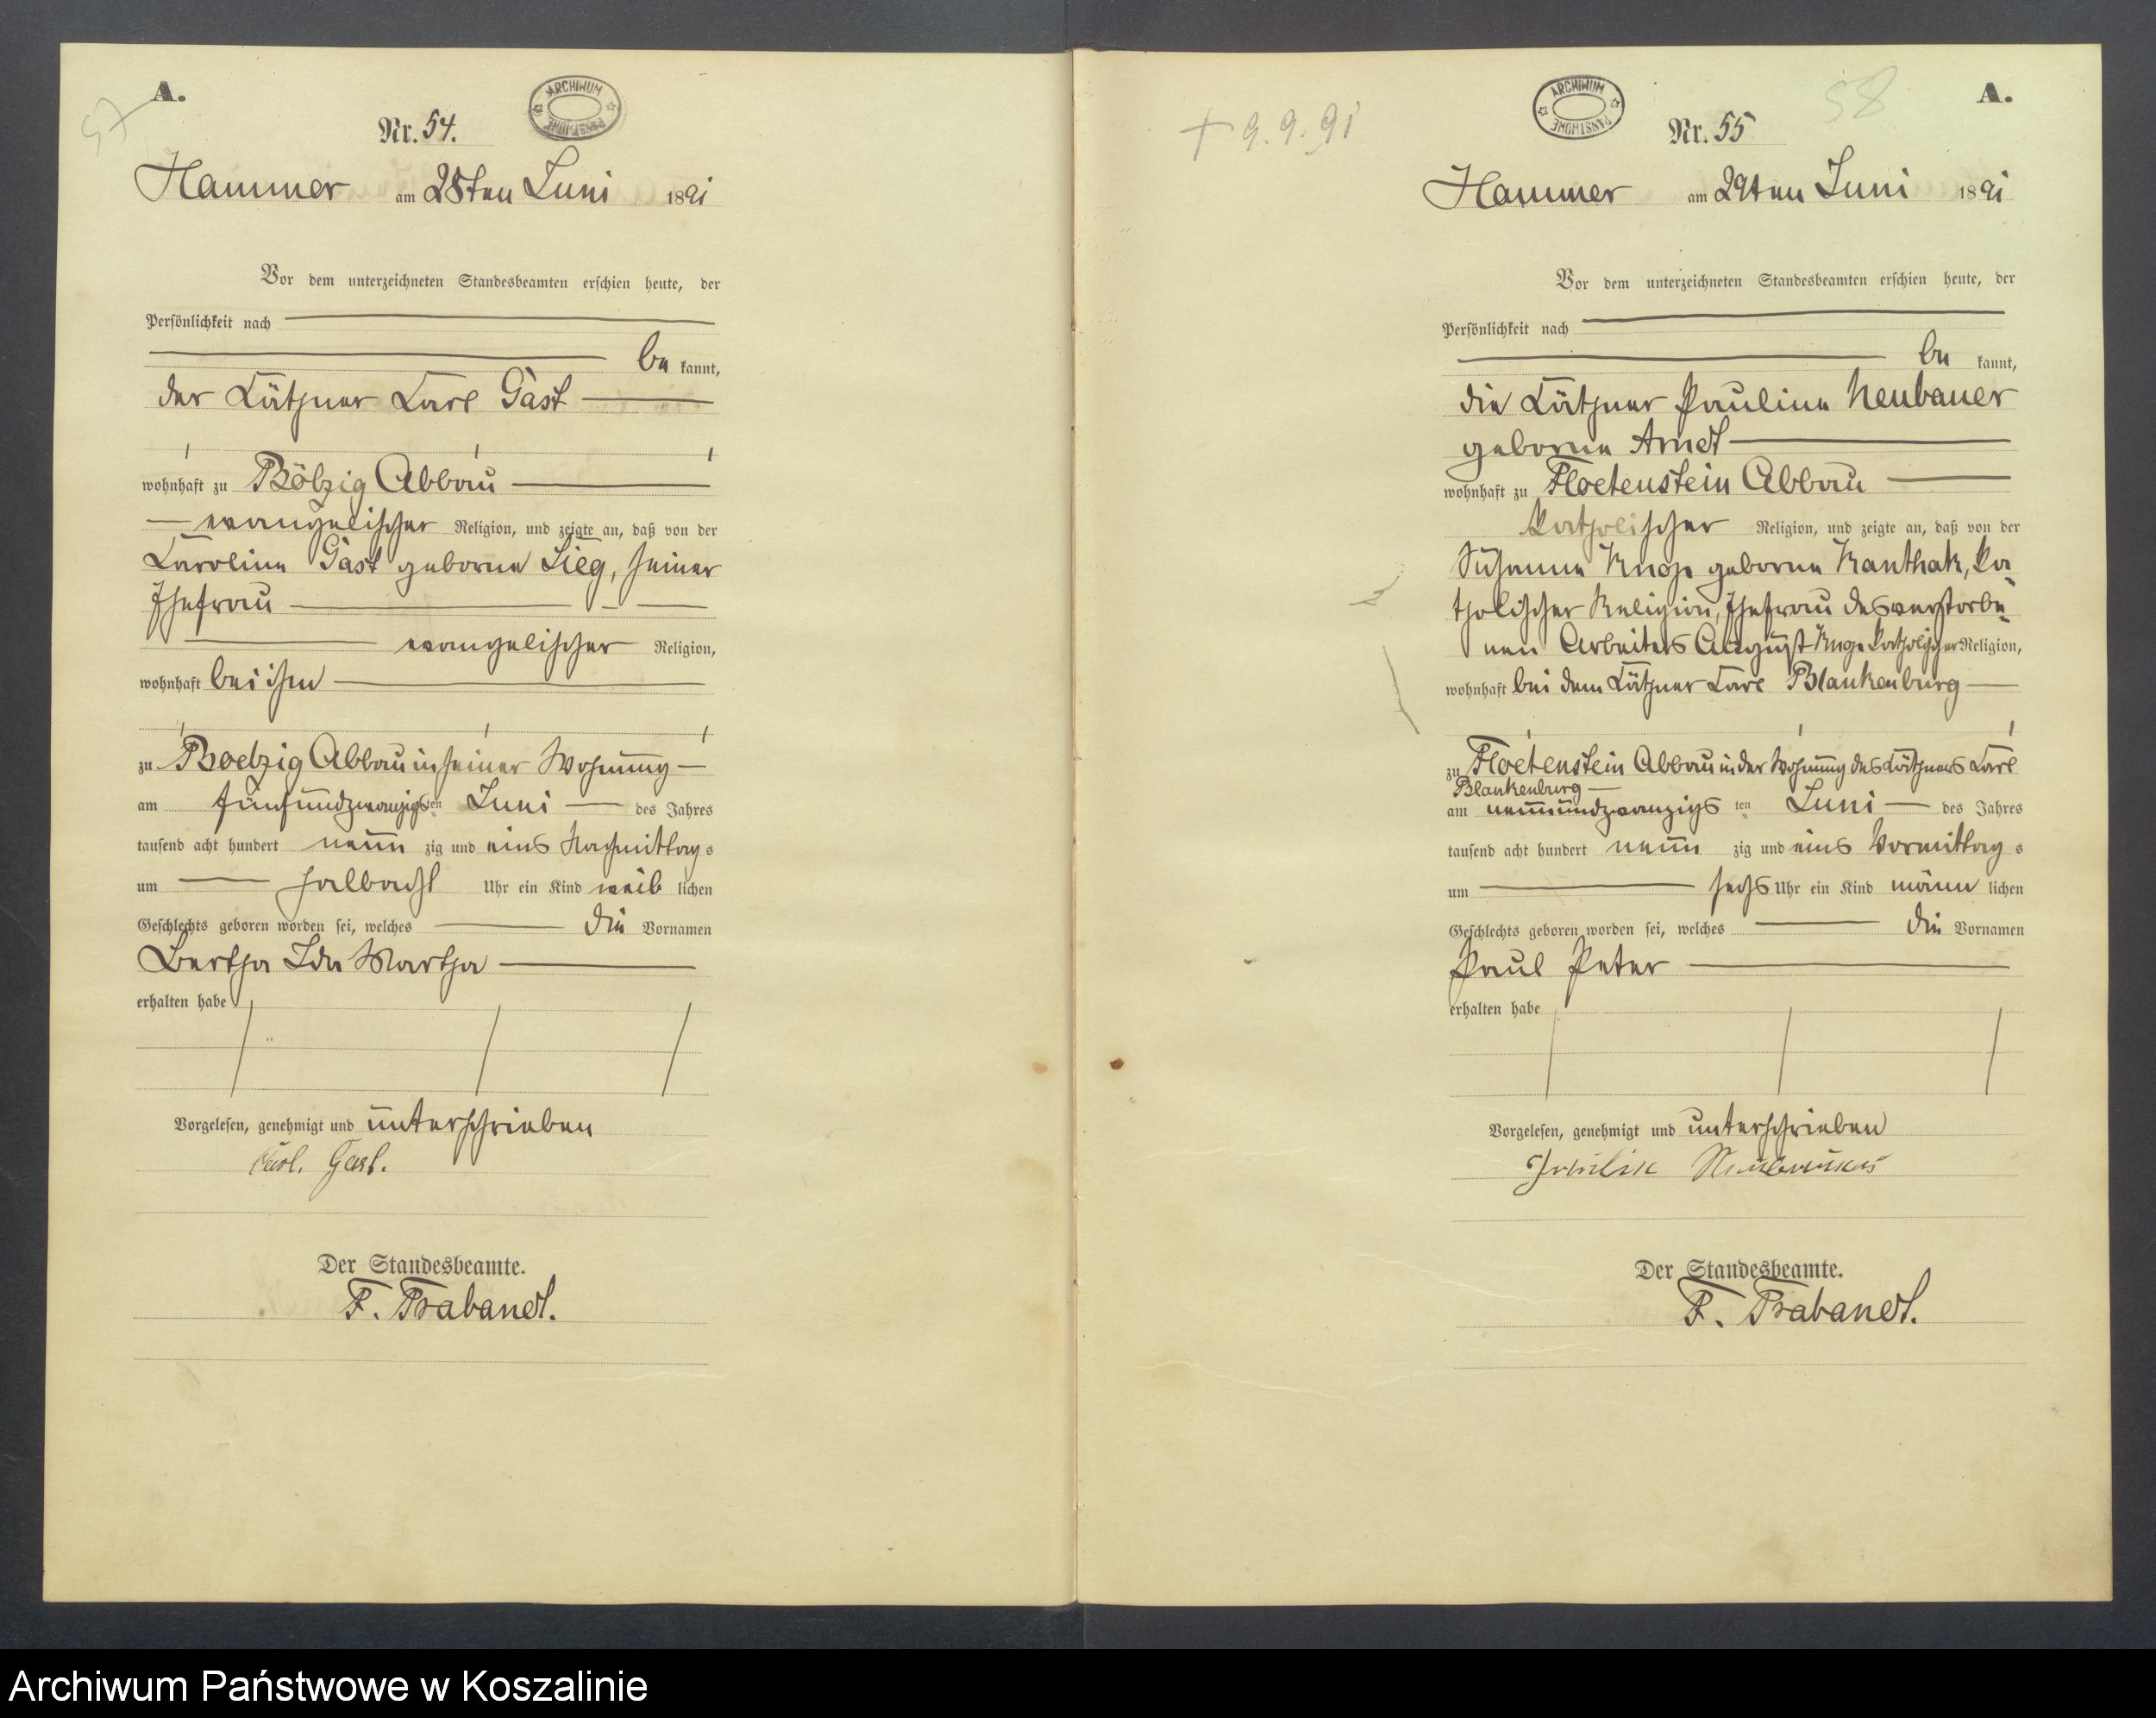 A.
57
Nr. 54.
ARCHIWUM PAŃSTWOWE
Hammer am 28ten Juni 1891
Vor dem unterzeichneten Standesbeamten erschien heute, der
Persönlichkeit nach
be kannt,
der Käthner Carl Gast
wohnhaft zu Bölzig Abbau
evangelischer Religion, und zeigte an, daß von der
Caroline Gast geborne Sieg, seiner
Ehefrau
evangelischer Religion,
wohnhaft bei ihm
zu Boelzig Abbau in seiner Wohnung
am fünfundzwanzigsten Juni des Jahres
tausend acht hundert neun zig und eins Nachmittags
um halbacht Uhr ein Kind weib lichen
Geschlechts geboren worden sei, welches die Vornamen
Bertha Ida Martha
erhalten habe
Vorgelesen, genehmigt und unterschrieben
Carl. Gast.
Der Standesbeamte.
F. Trabandt.
A.
58
Nr. 55
ARCHIWUM PAŃSTWOWE
+ 9.9.91
Hammer am 29ten Juni 1891
Vor dem unterzeichneten Standesbeamten erschien heute, der
Persönlichkeit nach
be kannt,
die Käthner Pauline Neubauer
geborne Arndt
wohnhaft zu Floetenstein Abbau
katholischer Religion, und zeigte an, daß von der
Susanna Knop geborne Kanthak, ka-
tholischer Religion, Ehefrau des verstorbe-
nen Arbeiters August Knop katholischer Religion,
wohnhaft bei dem Käthner Carl Blankenburg
zu Floetenstein Abbau in der Wohnung des Käthners Carl
Blankenburg
am neunundzwanzigs ten Juni des Jahres
tausend acht hundert neun zig und eins Vormittags
um sechs Uhr ein Kind männ lichen
Geschlechts geboren worden sei, welches die Vornamen
Paul Peter
erhalten habe
Vorgelesen, genehmigt und unterschrieben
Der Standesbeamte.
F. Trabandt.
Archiwum Państwowe w Koszalinie